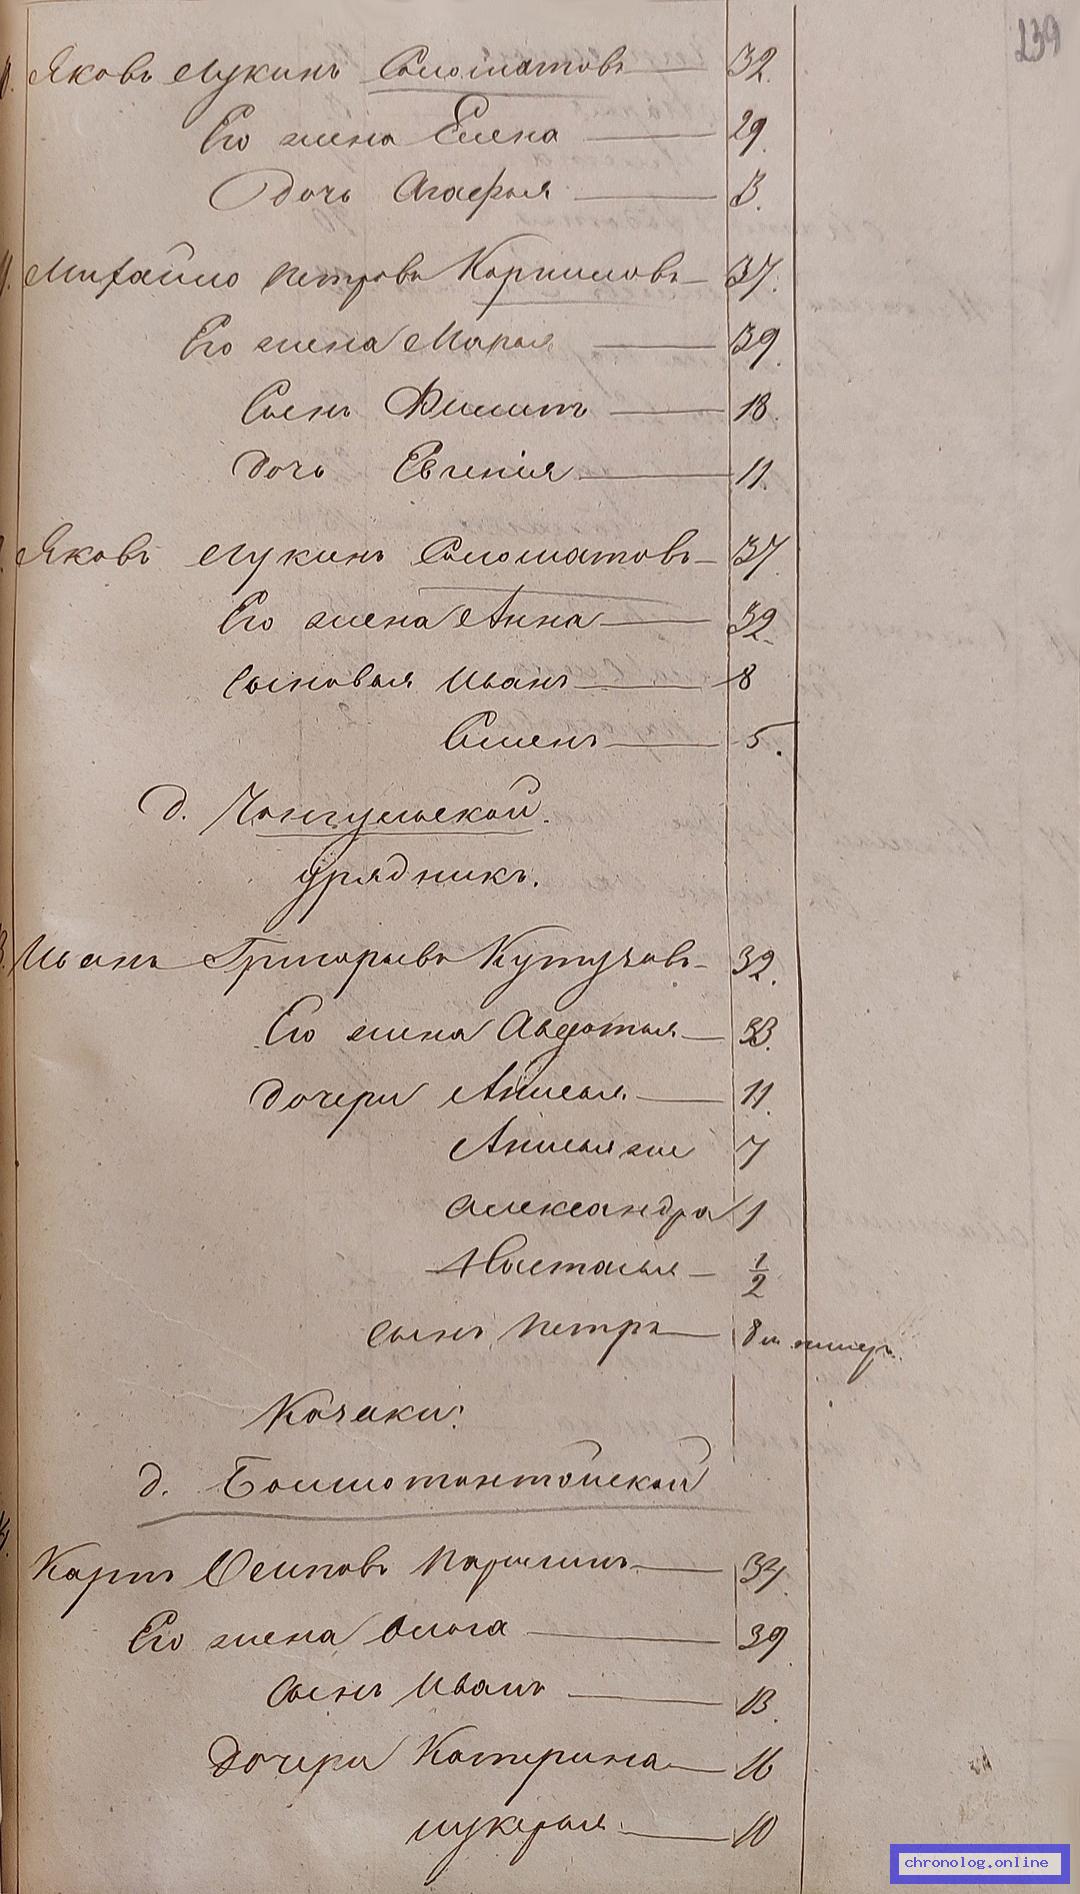 239
Яковъ Лукинъ Соломатовъ 32.
Его жена Елена 29.
Дочь Агафья 3.
Михайло Петровъ Корниловъ 37.
Его жена Марья 39.
Сынъ Филипъ 18.
Дочь Евгенія 11.
Яковъ Лукинъ Соломатовъ 37.
Его жена Анна 32.
Сыновья Иванъ 8
Семенъ 5.
д. Чонгульской.
Урядникъ.
Иванъ Григорьевъ Кутузовъ 32.
Его жена Авдотья 33.
Дочери Анисья 11.
Анисья же 7
Александра 1
Настасья 1/2
Сынъ Петръ 8
Козаки:
д.
Карпъ Осиповъ Паршинъ 34.
Его жена Ольга 39.
Сынъ Иванъ 13.
Дочери Катерина 16
Лукерья 10
chronolog.online